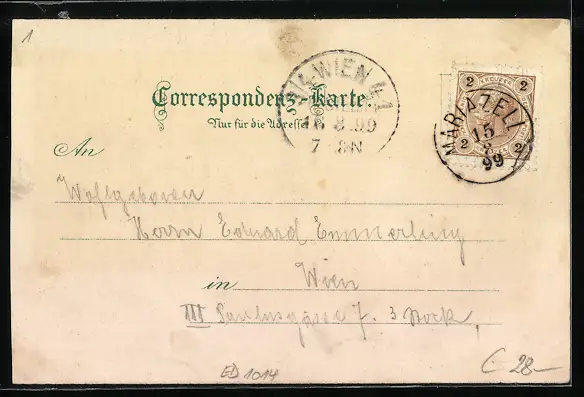 1
2 KREUZER 2
2 2
MARIAZELL
15
8
99
WIEN 4/1
16 8 99
7 8 N
Correspondenz-Karte.
Nur für die Adresse
An
Wohlgeboren
Herrn Eduard Emmerling
in Wien
III Paulusgasse 7. 3 Stock,
ED 1014
C 28-